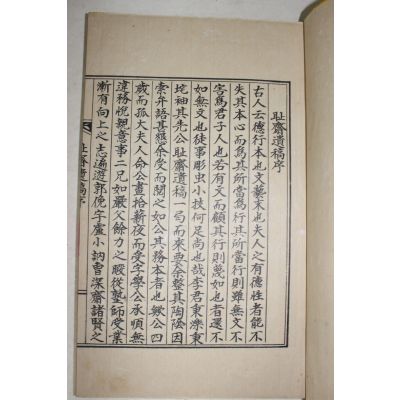 恥齋遺稿序
古人云德行本也文藝末也夫人之有德性者能不
失其本心而爲其所當爲行其所當行則雖無文不
害爲君子人也若有文而顧其行則蔑如也者還不
如無文也徒事彫虫小技何足尚也哉李君秉濼秉
坨袖其先公恥齋遺稿一局而來要余整其陶陰因
索弁語甚懇余受而閱之如公其務本者也歟公四
歲而孤大夫人命公晝拾薪夜而受字學公承順無
違務悅親意事二兄如嚴父餘力之暇從塾師受業
漸有向上之志遍遊郭俛宇盧小訥曺深齋諸賢之
恥齋遺稿序